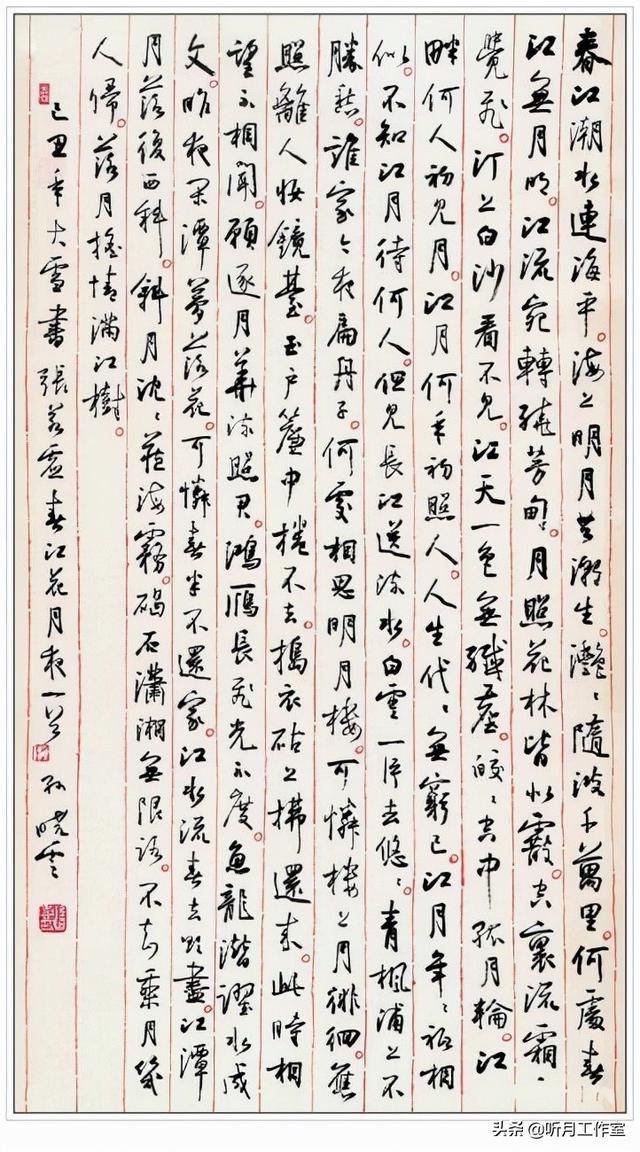 春江潮水連海平。海上明月共潮生。灩〻隨波千萬里。何處春
江無月明。江流宛轉繞芳甸。月照花林皆似霰。空裏流霜不
覺飛。汀上白沙看不見。江天一色無纖塵。皎〻空中孤月輪。江
畔何人初見月。江月何年初照人。人生代〻無窮已。江月年〻祗相
似。不知江月待何人。但見長江送流水。白雲一片去悠〻。青楓浦上不
勝愁。誰家今夜扁舟子。何處相思明月樓。可憐樓上月徘徊。應
照離人妝鏡臺。玉戶簾中捲不去。搗衣砧上拂還來。此時相
望不相聞。願逐月華流照君。鴻雁長飛光不度。魚龍潛躍水成
文。昨夜閑潭夢落花。可憐春半不還家。江水流春去欲盡。江潭
月落復西斜。斜月沈〻藏海霧。碣石瀟湘無限路。不知乘月幾
人歸。落月搖情滿江樹。
己丑年大雪書張若虛春江花月夜一首 孫曉雲
头条 @听月工作室